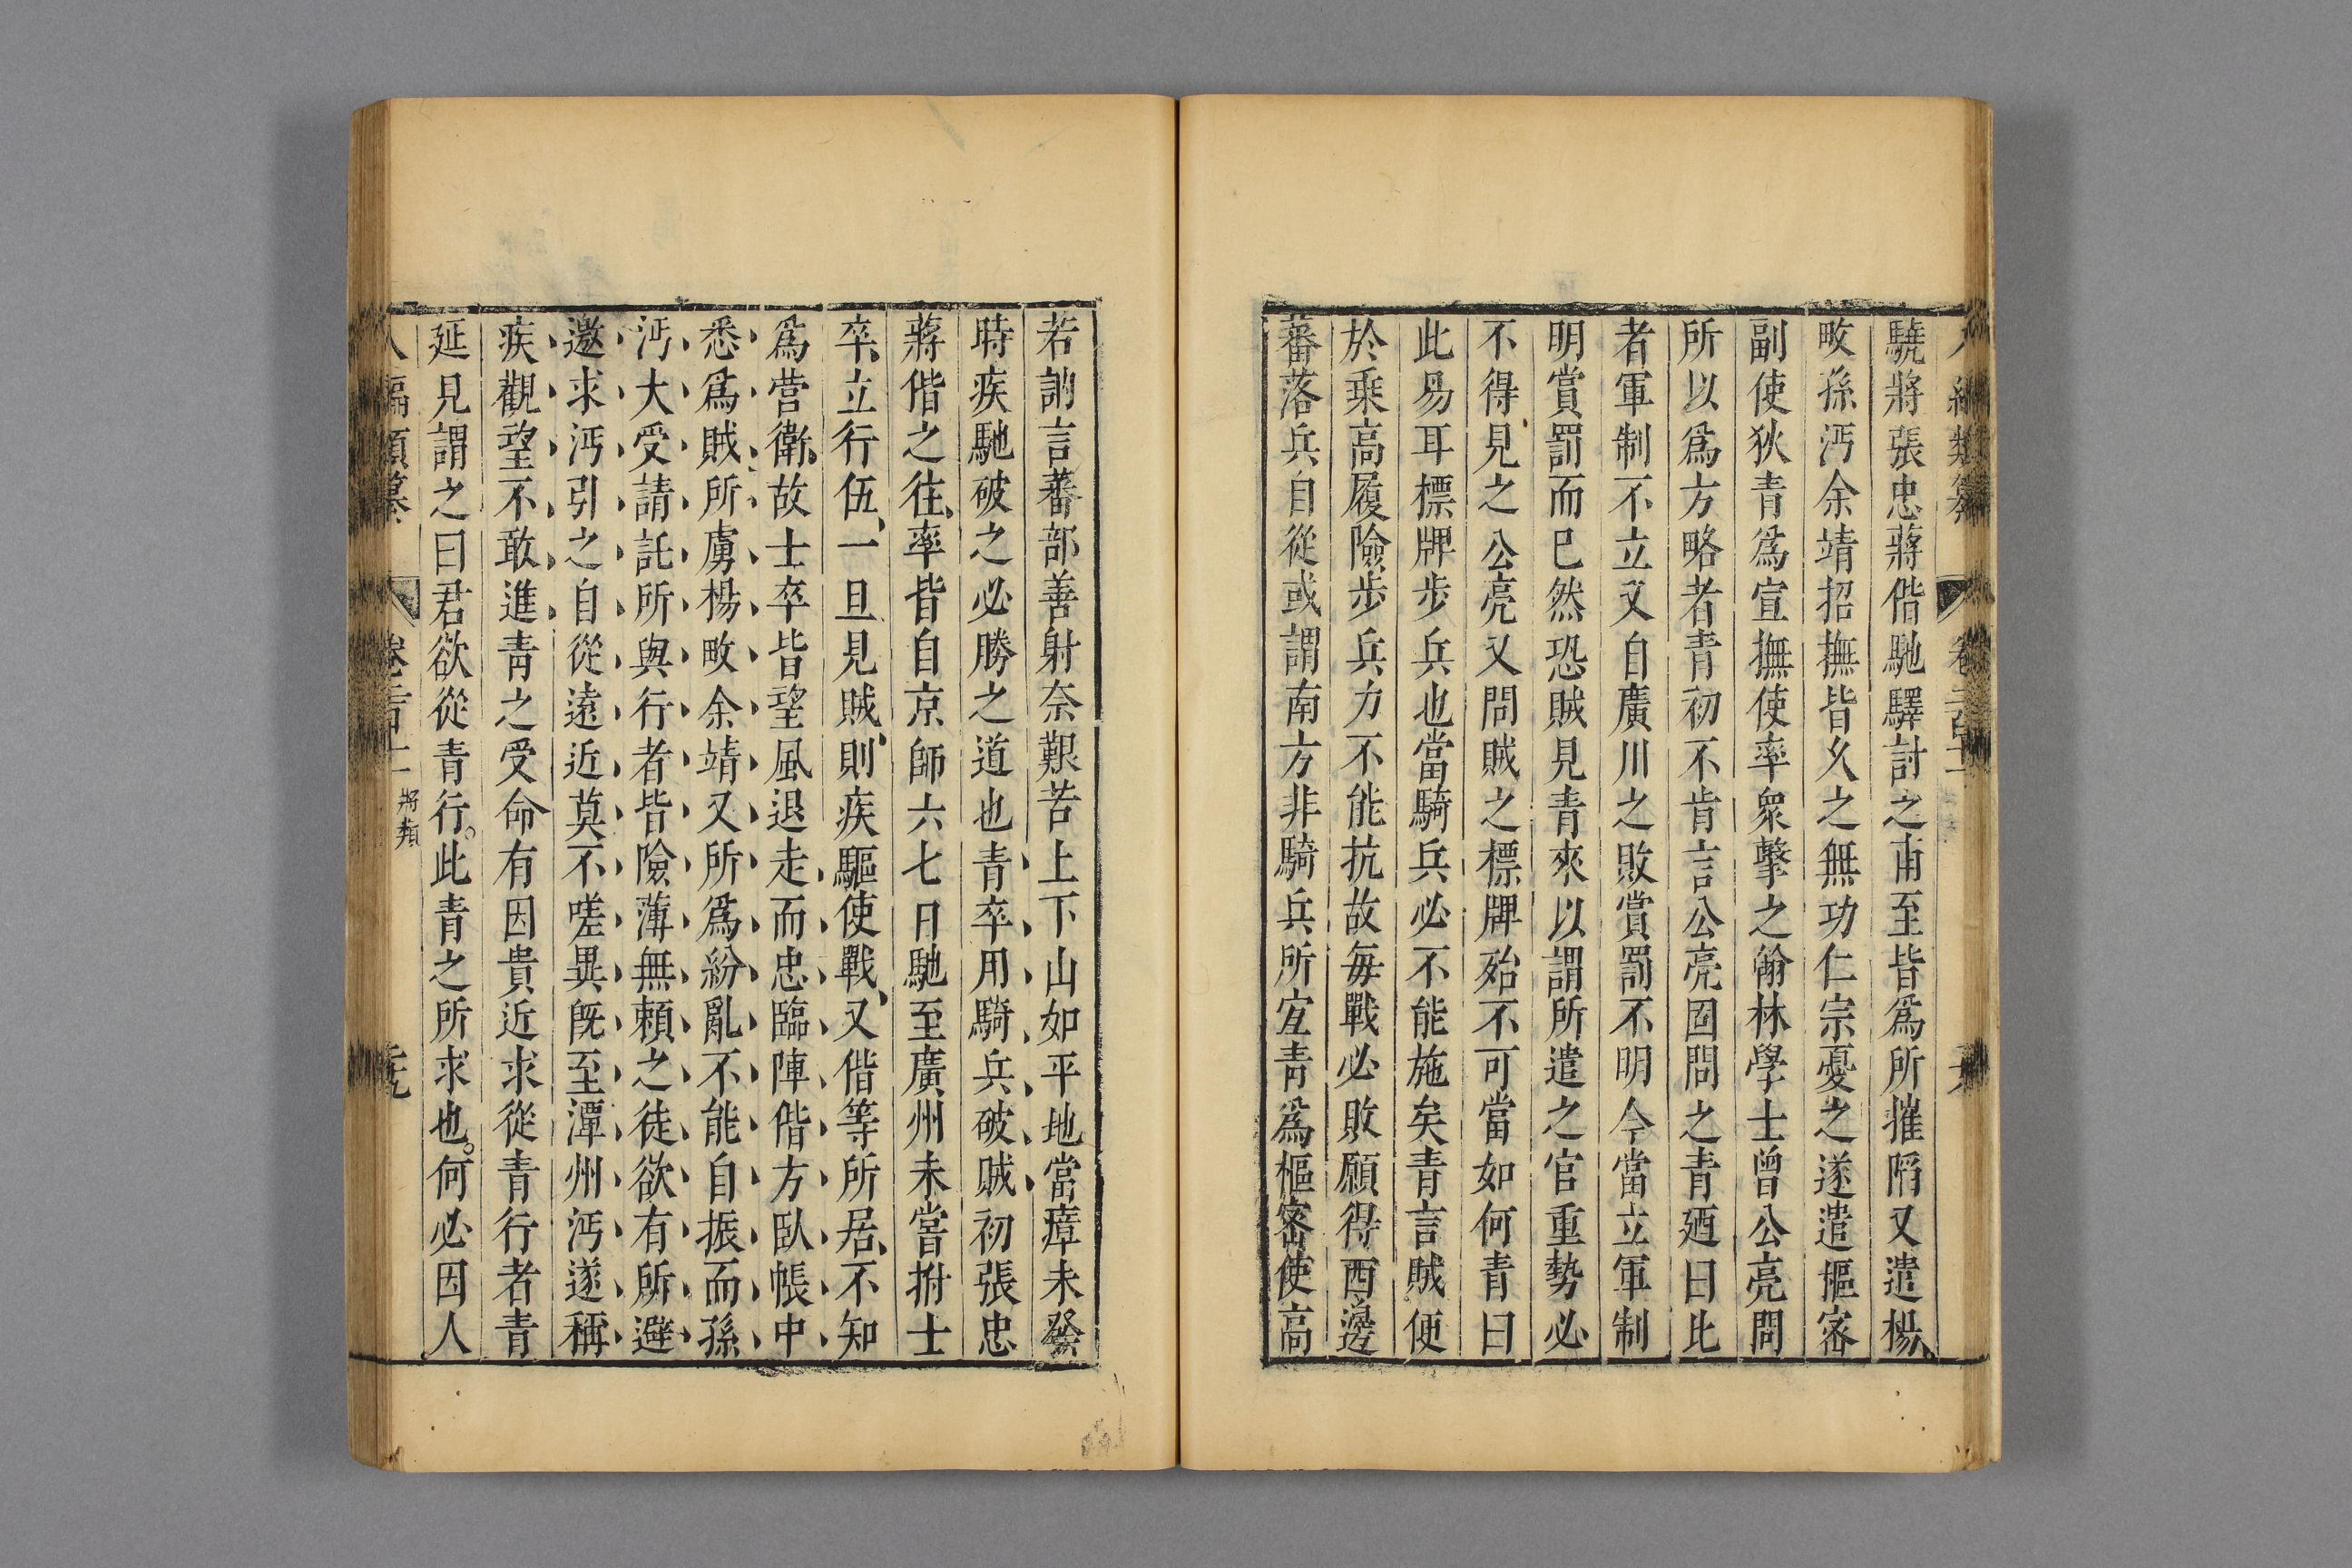 驍將張忠蔣偕馳驛討之甫至皆爲所摧陷又遣楊
畋孫沔余靖招撫皆久之無功仁宗憂之遂遣樞密
副使狄青爲宣撫使率衆擊之翰林學士曾公亮問
所以爲方略者青初不肯言公亮固問之青廼曰比
者軍制不立又自廣川之敗賞罰不明今當立軍制
明賞罰而已然恐賊見青來以謂所遣之官重勢必
不得見之公亮又問賊之標牌殆不可當如何青曰
此易耳標牌步兵也當騎兵必不能施矣青言賊便
於乗高履險步兵力不能抗故毎戰必敗願得西邊
蕃落兵自從或謂南方非騎兵所宜青爲樞密使高
若訥言蕃部善射奈艱苦上下山如平地當瘴未發
時疾馳破之必勝之道也青卒用騎兵破賊初張忠
蔣偕之往率皆自京師六七日馳至廣州未嘗拊士
卒立行伍一旦見賊則疾驅使戰又偕等所居不知
爲營衛故士卒皆望風退走而忠臨陣偕方臥帳中
悉爲賊所虜楊畋余靖又所爲紛亂不能自振而孫
沔大受請託所與行者皆險薄無賴之徒欲有所避
邀求沔引之自從遠近莫不嗟異旣至潭州沔遂稱
疾觀望不敢進青之受命有因貴近求從青行者青
延見謂之曰君欲從青行。此青之所求也。何必因人
將類